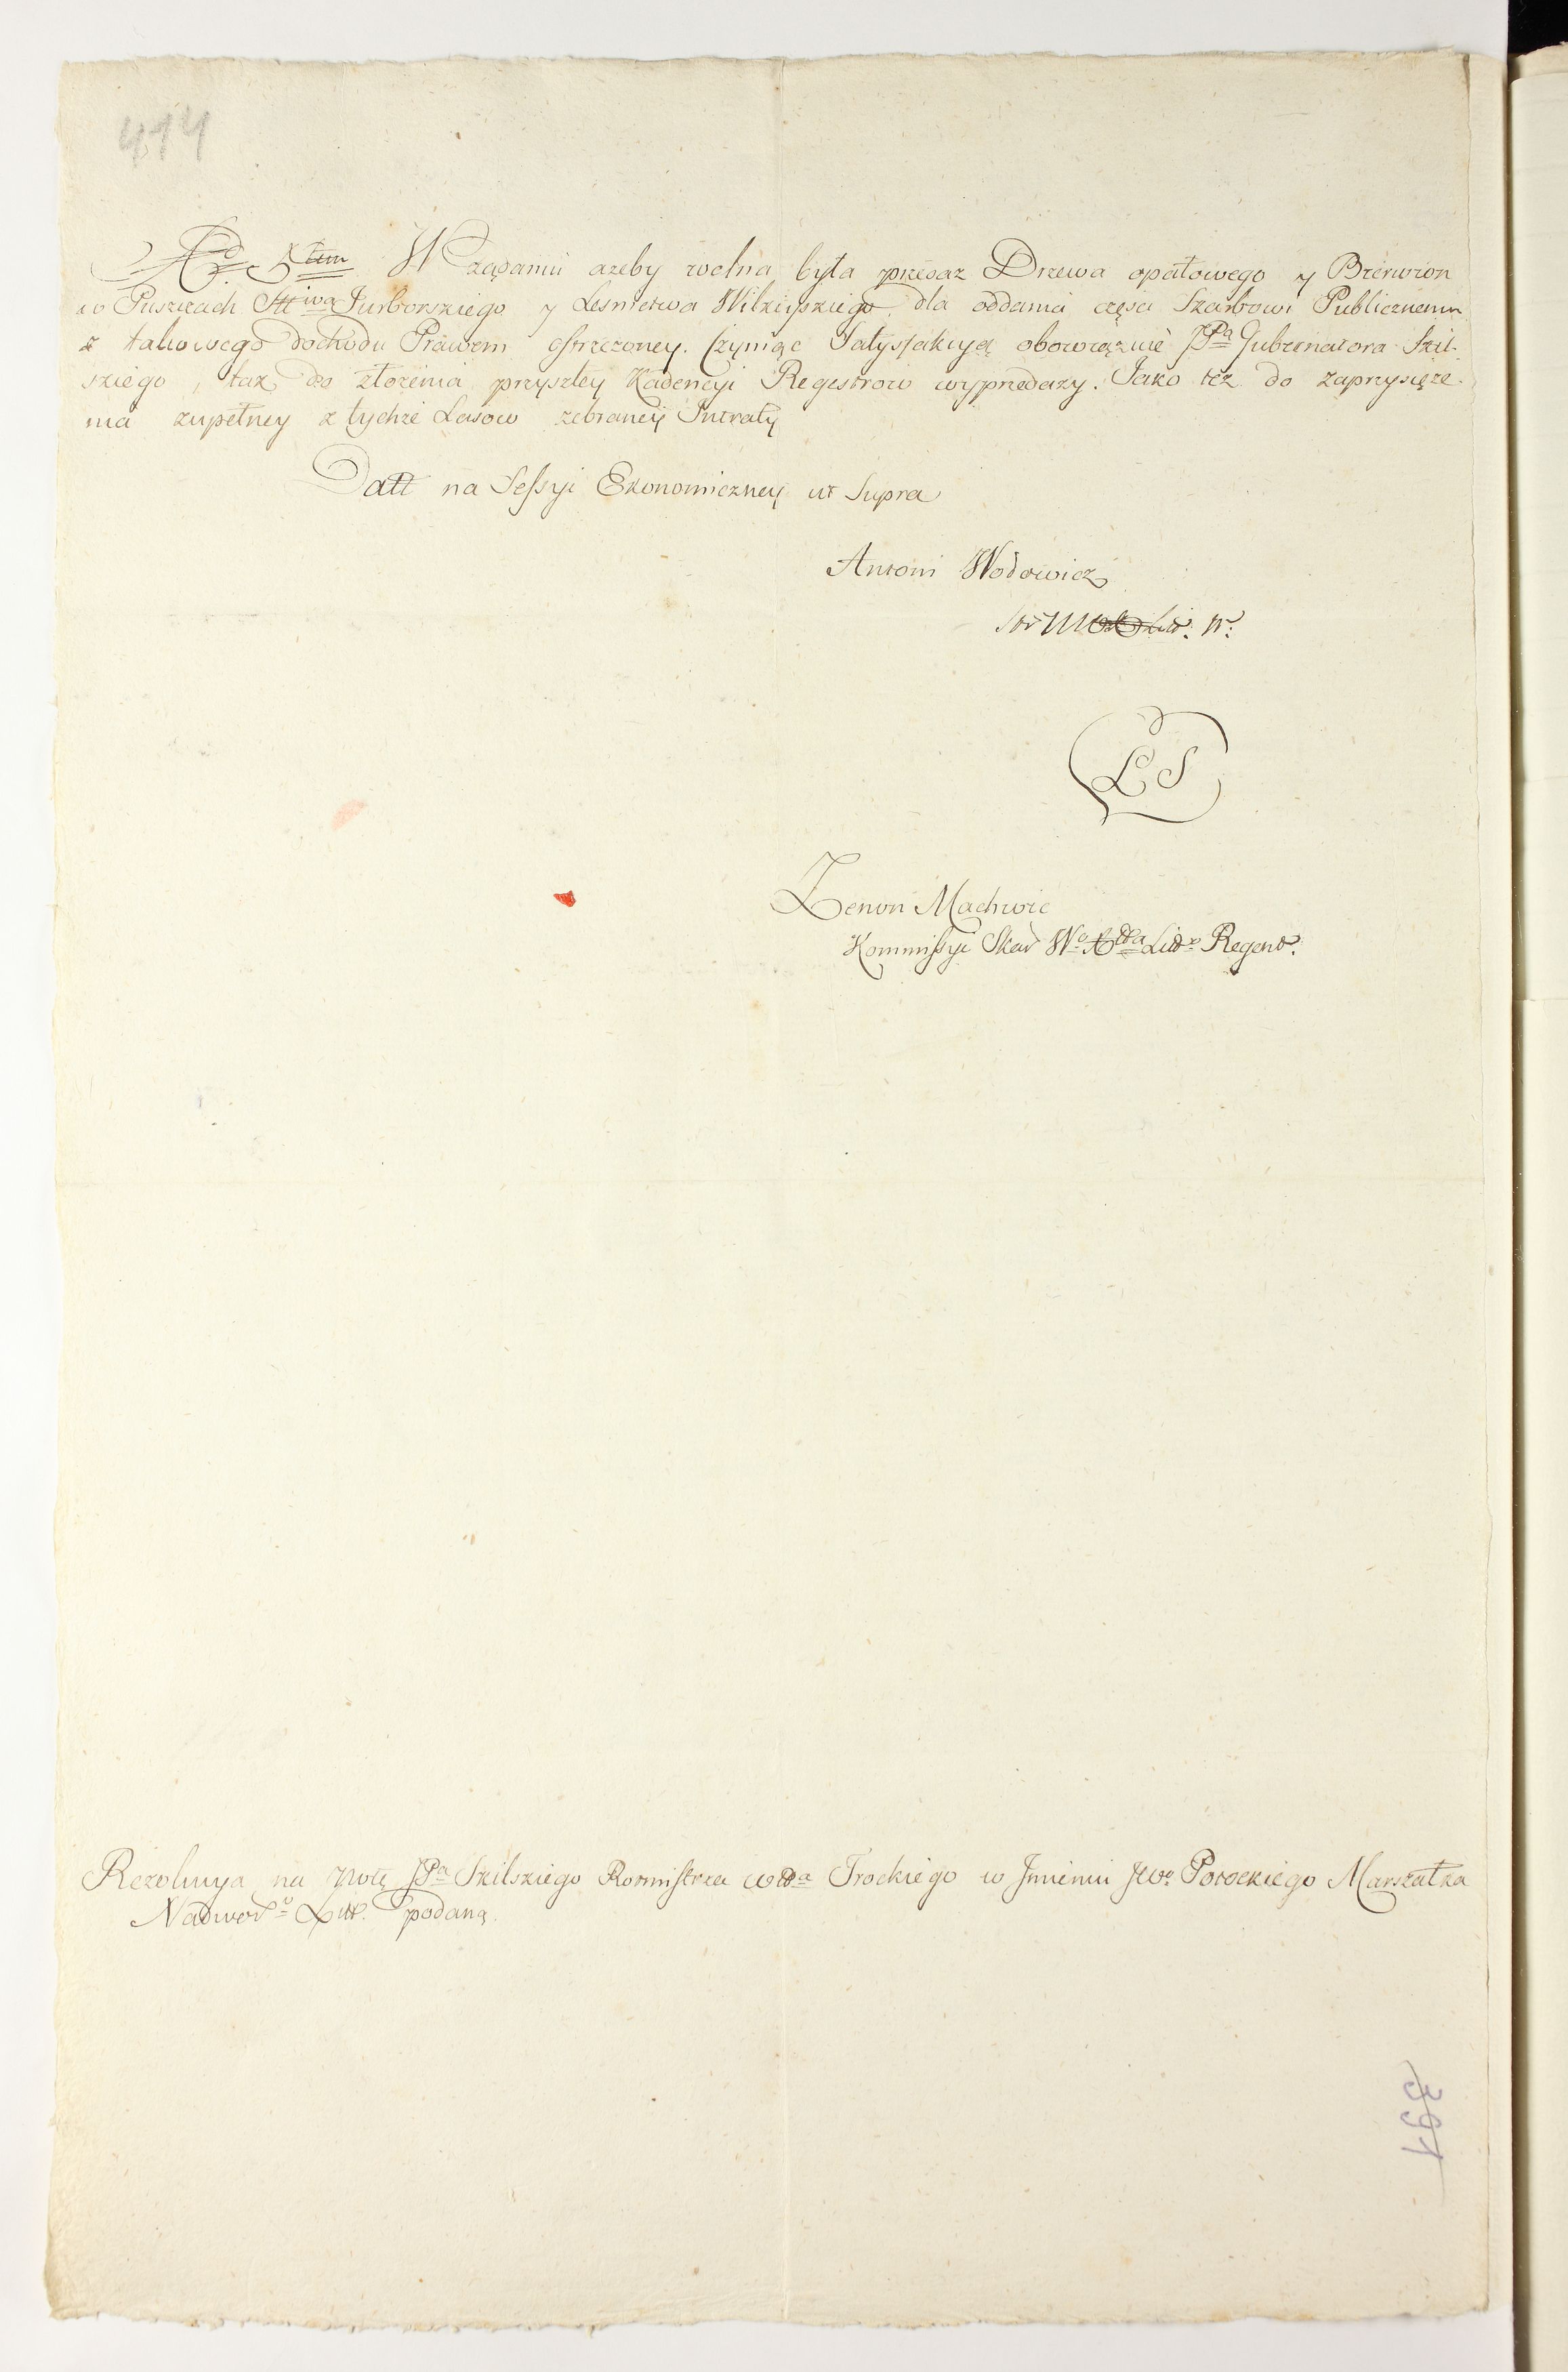 414
Ad 5tum W ządaniu azeby wolna była przedaz Drzewa opałowego y Brerwion
w Puszczach Sttiwa Jurborskiego y Lesnictwa Wilkiyskiego, dla oddania częsci Skarbowi Publicznemu
z takowego dochodu Prawem ostrzezoney. Czyniąc Satysfakcyą obowiązuie JPa Gubernatora Szil-
skiego, tak do złozenia przyszłey Kadencyi Regestrow wyprzedazy. Jako tez do zaprzysięze-
nia zupełney z tychze Lasow zebraney Intraty
Datt na Sessyi Ekonomiczney ut Supra
Antoni Wodowicz
Litt:
LS
Zenon Machwic
Kommissyi Skar Wo Xttwa Litto Regent.
Rezolucya na Notę JPa Szilskiego Rotmistrza Wdtwa Trockiego w Imieniu JWo Potockiego Marszałka
Nadwor:o Litt. podaną.
394